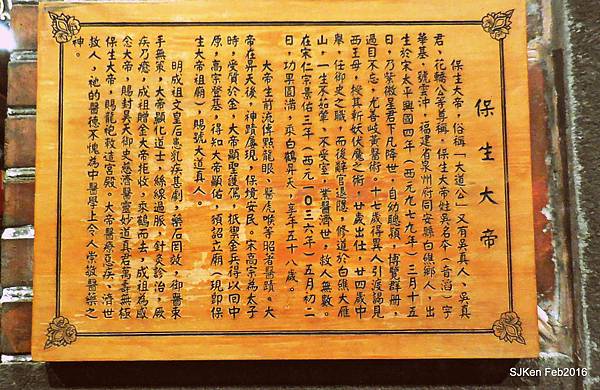 保生大帝
保生大帝，俗稱「大道公」又有吳真人、吳真
君、花轎公等尊稱。保生大帝姓吳名夲（音滔）字
華基，號雲沖，福建省泉州府同安縣白礁鄉人，出
生於宋太平興國四年（西元九七九年）三月十五
日，乃紫微星君下凡降世，自幼聰穎，博覽群冊，
過目不忘，尤善岐黃醫術。十七歲得異人引渡謁見
西王母，授其斬妖伏魔之術，廿歲出仕，廿四歲中
舉，任御史之職，而後辭官退隱，修道於白礁大雁
山，一生不茹葷、不娶室，業醫濟世，救人無數。
在宋仁宗景佑三年（西元一０三六年）五月初二
日，功果圓滿，乘白鶴昇天，享年五十八歲。
大帝生前流傳點龍眼、醫虎喉等昭著醫蹟。大
帝在昇天後，神蹟屢現，保境安民。宋高宗為太子
時，受質於金，大帝顯聖護駕，抵禦金兵得以回中
原，高宗登基，得知大帝顯佑，頒詔立廟（現即保
生大帝祖廟），賜號大道真人。
明成祖文皇后患乳疾甚劇，藥石罔效，御醫束
手無策，大帝顯化道士，絲線過脈，針灸診治，厥
疾乃癒，成祖贈金大帝拒收，乘鶴而去，成祖為感
念大帝，賜封昊天御史慈濟醫靈妙道真君萬壽無極
保生大帝，賜龍袍敕造宮殿。大帝醫療惡疾、濟世
救人，祂的醫德不愧為中醫學上令人崇敬醫藥之
神。
SJKen Feb2016